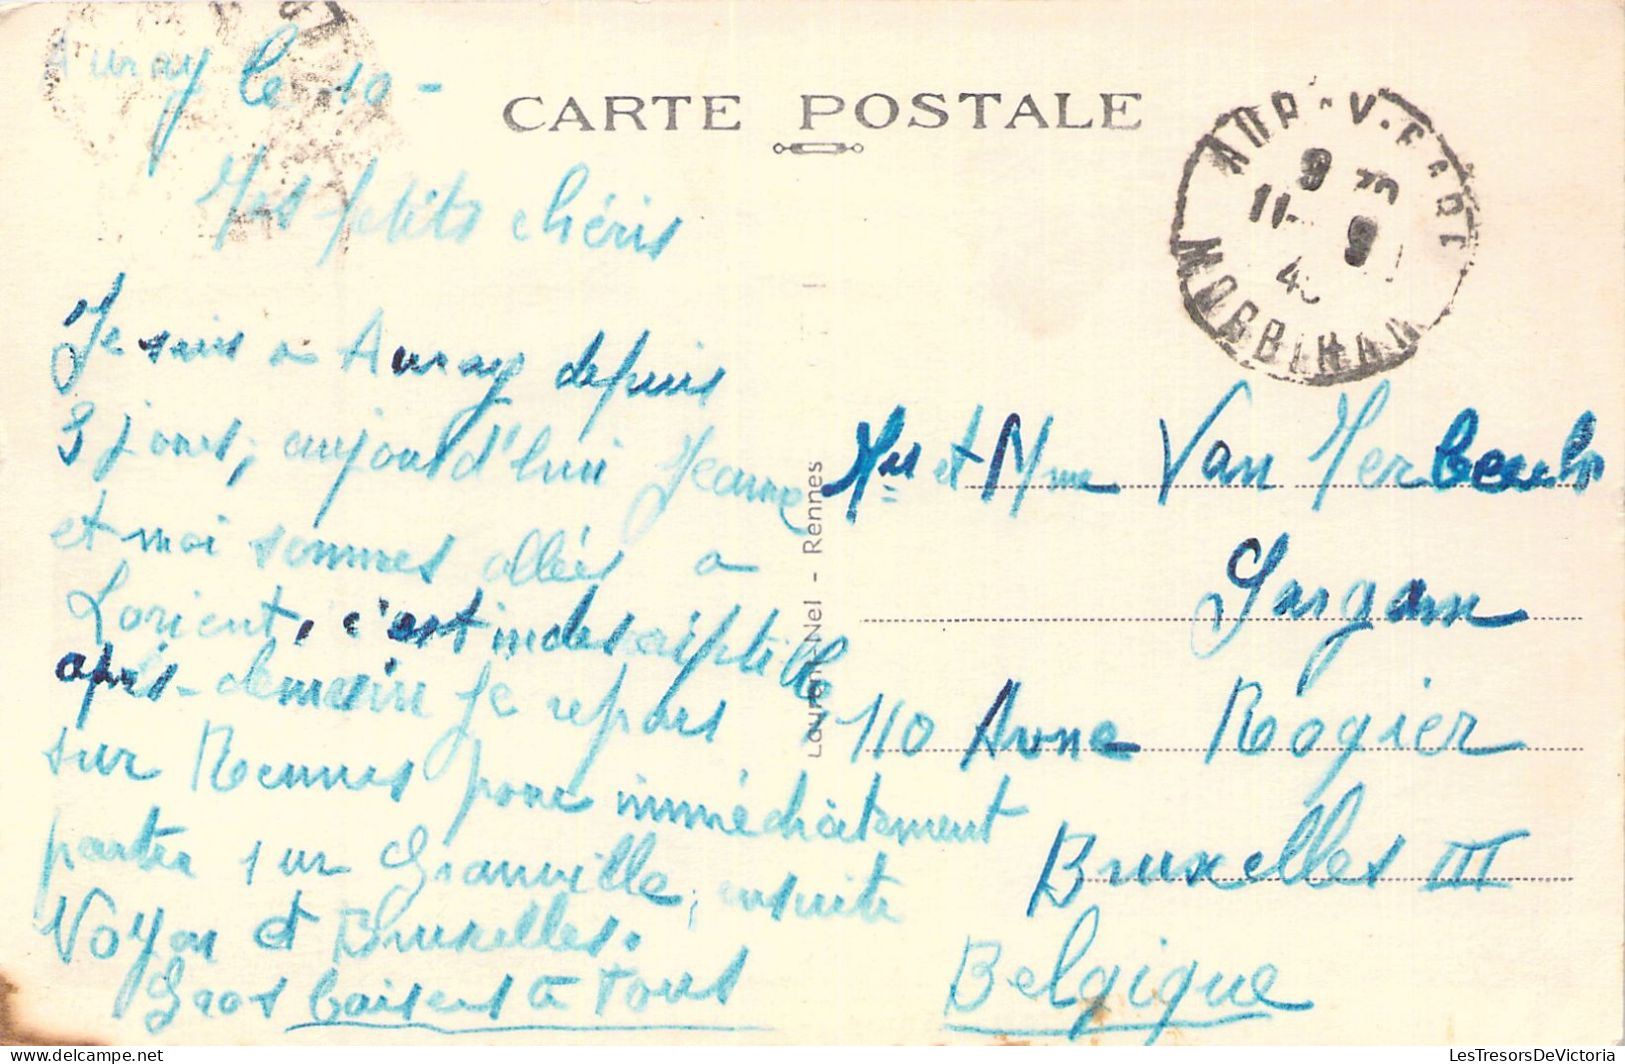 Auray le 10 -
CARTE POSTALE
Mes petits chéris
Je suis a Auray depuis
8 jours, aujourd'hui Jeanne
et moi sommes allées a
Lorient, c'est indescriptible,
après-demain je repars
sur Rennes pour immédiatement
partir sur Granville, ensuite
Noyon et Bruxelles.
Gros baisers à tous
Laurent-Nel - Rennes
9 30
11 - 9
MORBIHAN
Mr et Mme Van
110 Avne Rogier
Bruxelles III
Belgique
LesTresorsDeVictoria